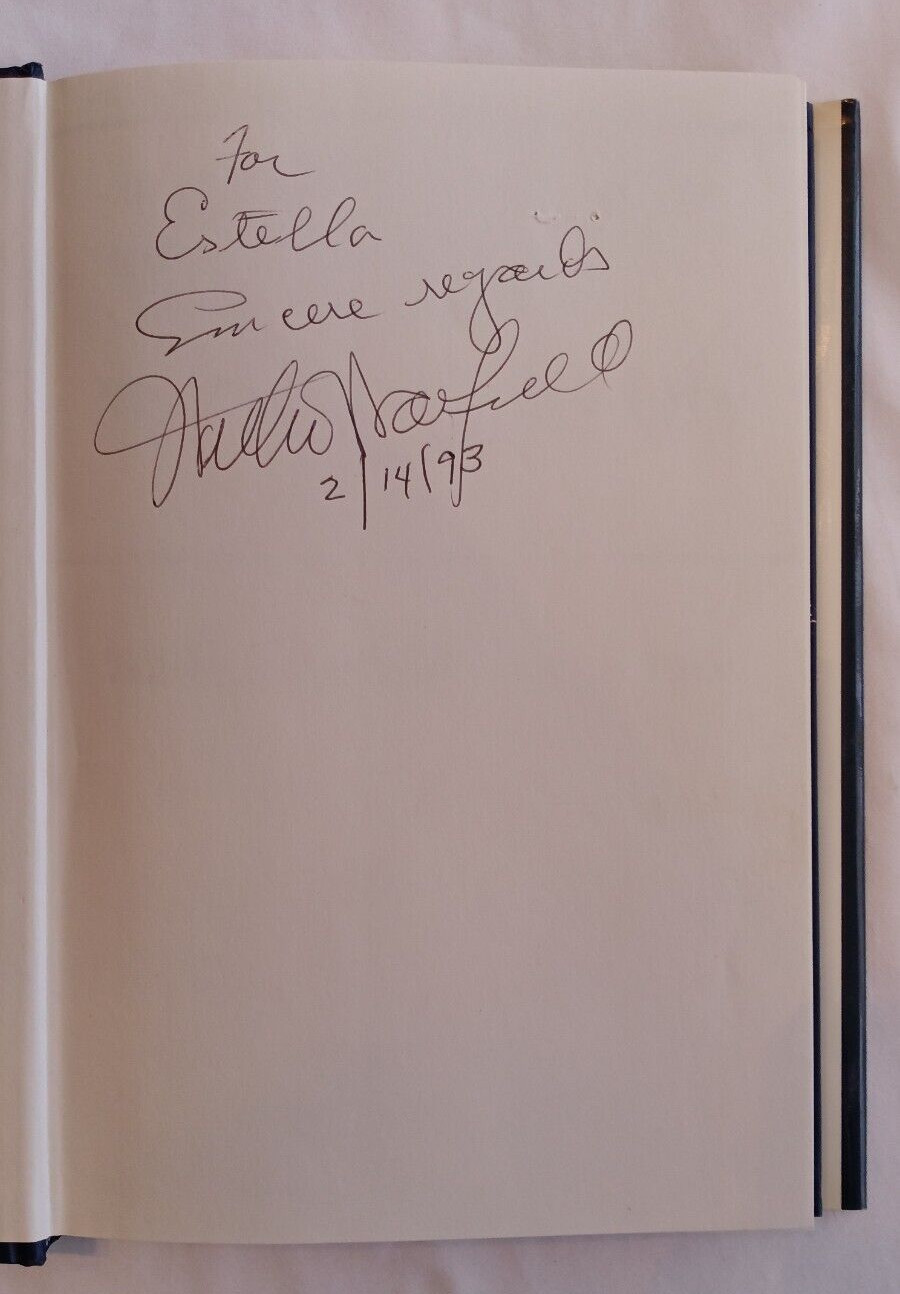 For
Estella
Sincere regards
2/14/93